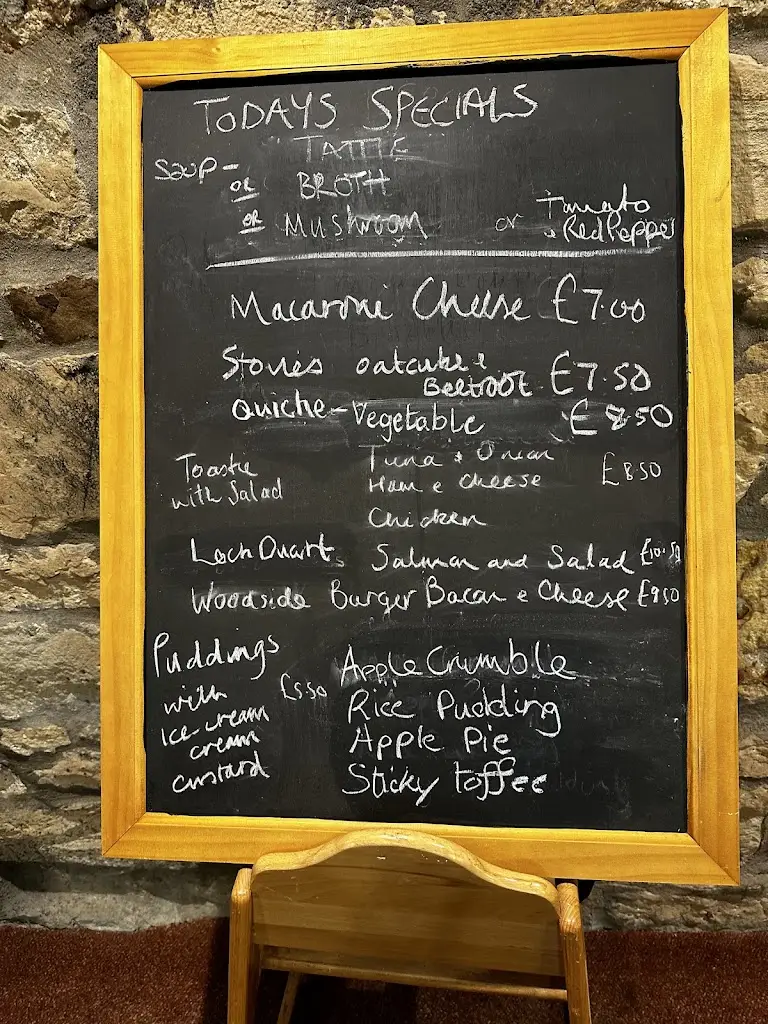 TODAYS SPECIALS
SOUP - TATTIE
or BROTH
or Mushroom or Tomato & Red Pepper
Macaroni Cheese £7.00
Stovies oatcake & Beetroot £7.50
Quiche - Vegetable £8.50
Toastie with Salad Tuna & Onion £8.50
Ham & Cheese
Chicken
Loch Duart Salmon and Salad £10.50
Woodside Burger Bacon & Cheese £9.50
Puddings £5.50 Apple Crumble
with Rice Pudding
Ice-cream Apple Pie
cream
custard Sticky toffee